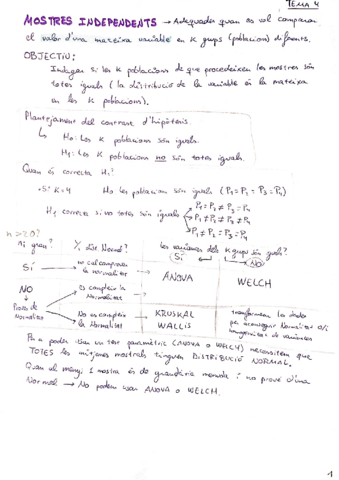 TEMA 4
MOSTRES INDEPENDENTS → Adequades quan es vol comparar
el valor d'una mateixa variable en K grups (poblacions) diferents.
OBJECTIU:
Indagar si les K poblacions de que procedeixen les mostres són
totes iguals (la distribució de la variable és la mateixa
en les K poblacions).
Plantejament del contrast d'hipòtesis.
↳ H0: Les K poblacions són iguals.
H1: Les K poblacions no són totes iguals.
Quan és correcta H1?
→ Si K=4 H0 les poblacions són iguals (P1=P2=P3=P4)
H1 correcta si no totes són iguals
n≥20?
n gran? Y, dist Normal? les variàncies dels K grups són iguals?
SÍ NO
SÍ → no cal comprovar la normalitat
ANOVA WELCH
NO → es compleix la Normalitat
Proves de Normalitat
No es compleix la Normalitat
KRUSKAL WALLIS
transformem les dades
per aconseguir Normalitat o/i
homogeneïtat de variàncies
Per a poder usar un test paramètric (ANOVA o WELCH) necessitem que
TOTES les mitjanes mostrals tinguen DISTRIBUCIÓ NORMAL.
Quan al menys 1 mostra és de grandària menuda i no prové d'una
Normal → No podem usar ANOVA o WELCH.
1